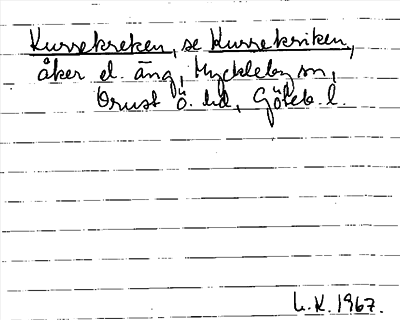 Kurrekreken, se Kurrekriken,
åker el. äng, Myckleby sn,
Orust Ö. hd, Göteb. l.
L.K. 1967.